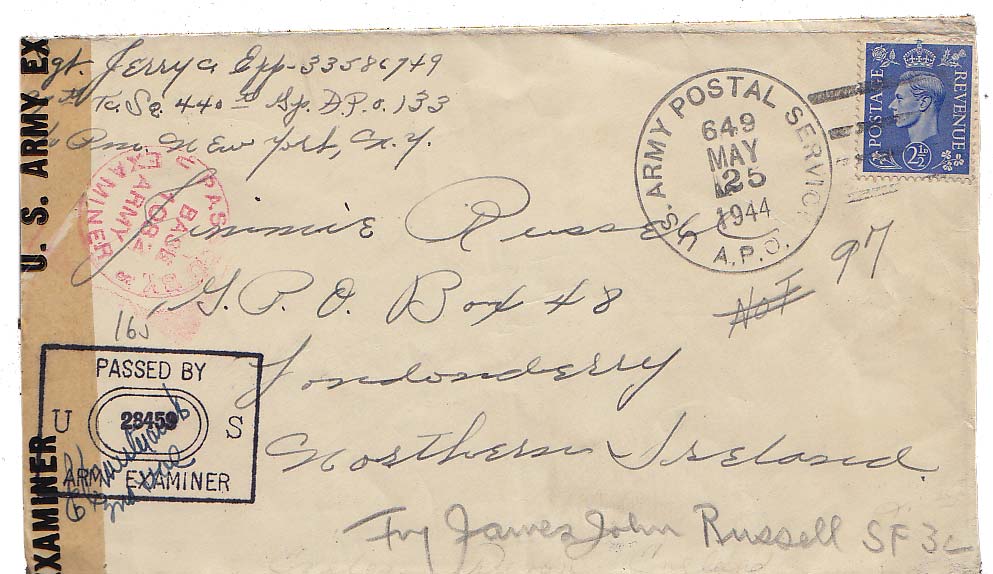 Sgt. Jerry A Epp-33586749
Tc. Sq. 440th Gp. A.P.O. 133
℅ P.m. New York, N.Y.
U.S. ARMY POSTAL SERVICE
649
MAY
25
1944
A.P.O.
POSTAGE
REVENUE
2½D
U. S. ARMY EX
EXAMINER
PASSED BY
BASE
1084
ARMY
EXAMINER
Jimmie Russell
G.P.O. Box 48
Londonderry
Northern Ireland
Not
97
165
PASSED BY
U 28459 S
ARMY EXAMINER
Try James John Russell SF 3c